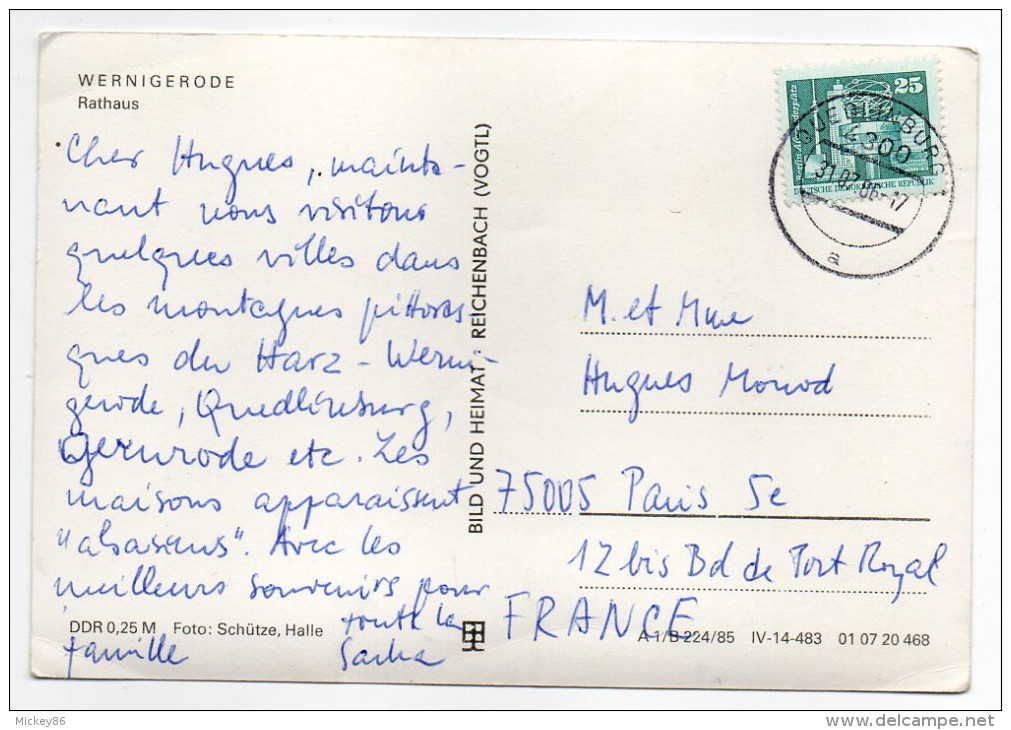 WERNIGERODE
Rathaus
Cher Hugues, mainte-
nant nous visitons
quelques villes dans
les montagnes pittores
ques du Harz - Werni-
gerode, Quedlinburg,
Gernrode etc. Les
maisons apparaissent
"alsasiens". Avec les
meilleurs souvenirs pour
toute la
famille
Sacha
DDR 0,25 M Foto: Schütze, Halle
BILD UND HEIMAT REICHENBACH (VOGTL)
25
DEUTSCHE DEMOKRATISCHE REPUBLIK
QUEDLINBURG 1
4300
31.07.86-17
a
M. et Mme
Hugues Monod
75005 Paris 5e
12 bis Bd de Port Royal
FRANCE
A 1/B 224/85 IV-14-483 01 07 20 468
Mickey86
www.delcampe.net